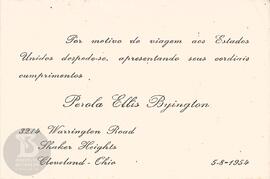 Por motivo de viagem aos Estados
Unidos despede-se, apresentando seus cordiais
cumprimentos
Perola Ellis Byington
3214 Warrington Road
Shaker Heights
Cleveland - Ohio
5-8-1954